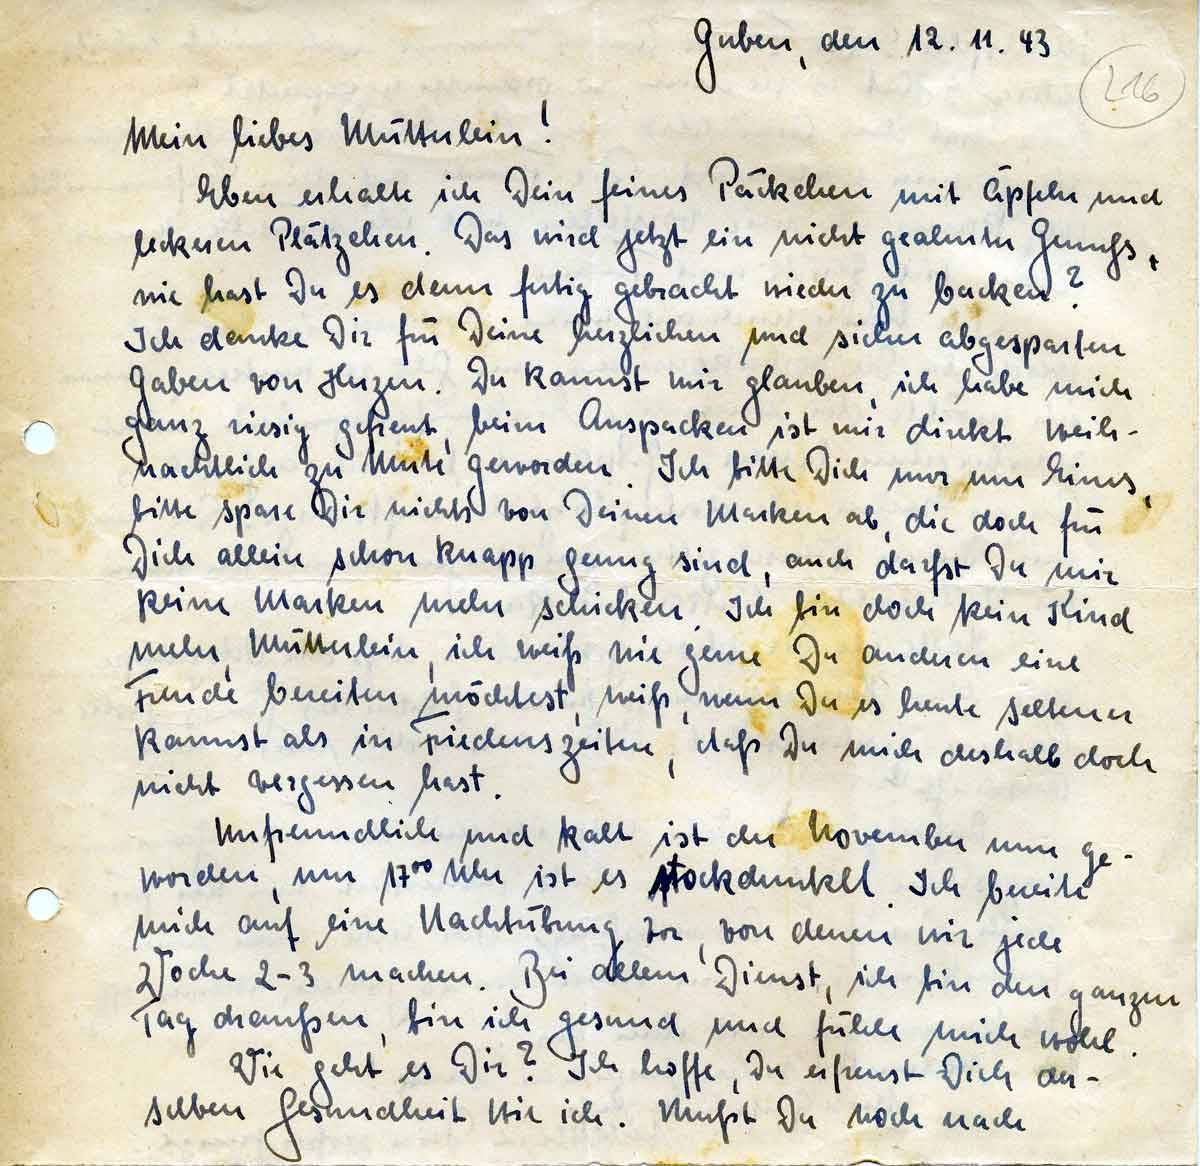 Guben, den 12.11.43
216
Mein liebes Mütterlein!
Eben erhalte ich Dein feines Päckchen mit Äpfeln und
leckeren Plätzchen. Das wird jetzt ein nicht geahnter Genuß,
wie hast Du es denn fertig gebracht wieder zu backen?
Ich danke Dir für Deine herzlichen und sicher abgesparten
Gaben von Herzen. Du kannst mir glauben, ich habe mich
ganz riesig gefreut, beim Auspacken ist mir direkt weih-
nachtlich zu Mute geworden. Ich bitte Dich nur um Eines,
bitte spare Dir nichts von Deinen Marken ab, die doch für
Dich allein schon knapp genug sind, auch darfst Du mir
keine Marken mehr schicken. Ich bin doch kein Kind
mehr, Mütterlein, ich weiß wie gerne Du anderen eine
Freude bereiten möchtest, weiß, wenn Du es heute seltener
kannst als in Friedenszeiten, daß Du mich deshalb doch
nicht vergessen hast.
Unfreundlich und kalt ist der November nun ge-
worden, um 17⁰⁰ Uhr ist es stockdunkel. Ich bereite
mich auf eine Nachtübung vor, von denen wir jede
Woche 2-3 machen. Bei allem Dienst, ich bin den ganzen
Tag draußen, bin ich gesund und fühle mich wohl.
Wie geht es Dir? Ich hoffe, Du erfreust Dich der-
selben Gesundheit wie ich. Mußt Du noch nach